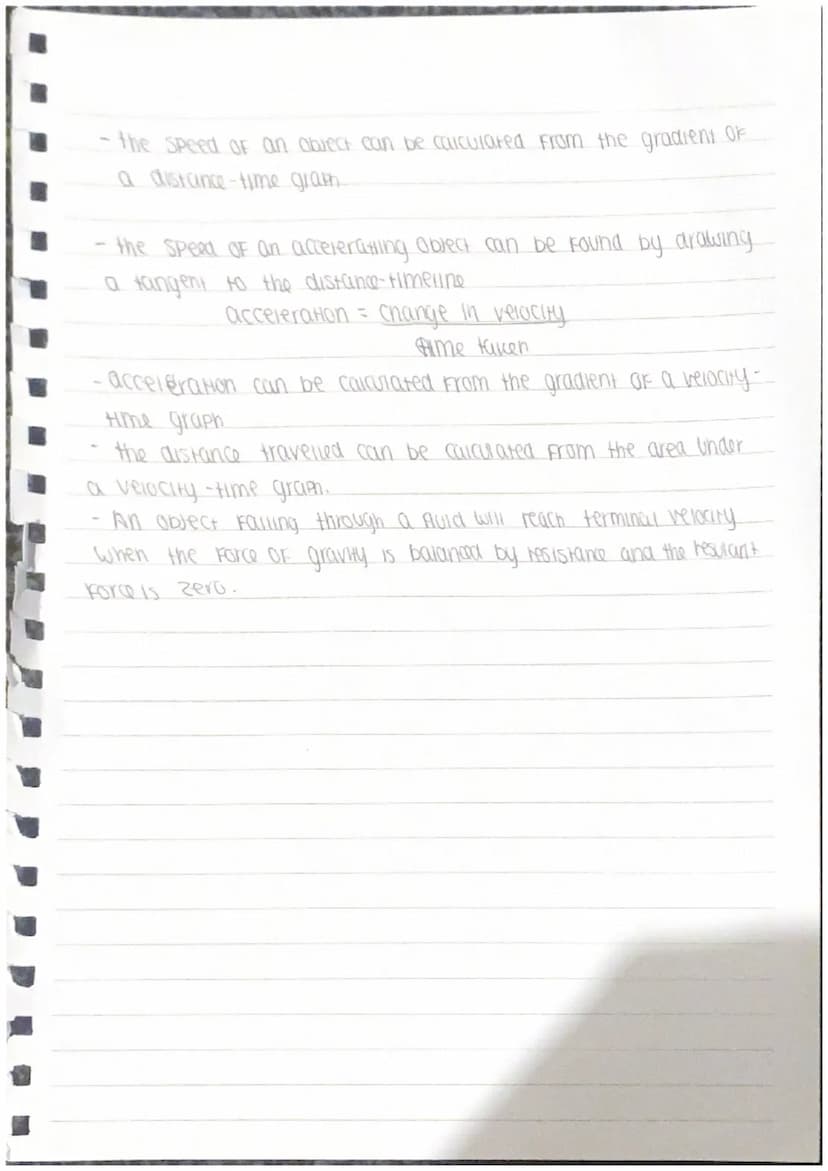 - the speed of an object can be calculated from the gradient of
a distance-time graph
- the speed of an accelerating object can be found by drawing
a tangent to the distance-timeline
acceleration = change in velocity
time taken
- acceleration can be calculated from the gradient of a velocity-
time graph
- the distance travelled can be calculated from the area under
a velocity-time graph.
- An object falling through a fluid will reach terminal velocity
when the force of gravity is balanced by resistance and the resultant
force is zero.